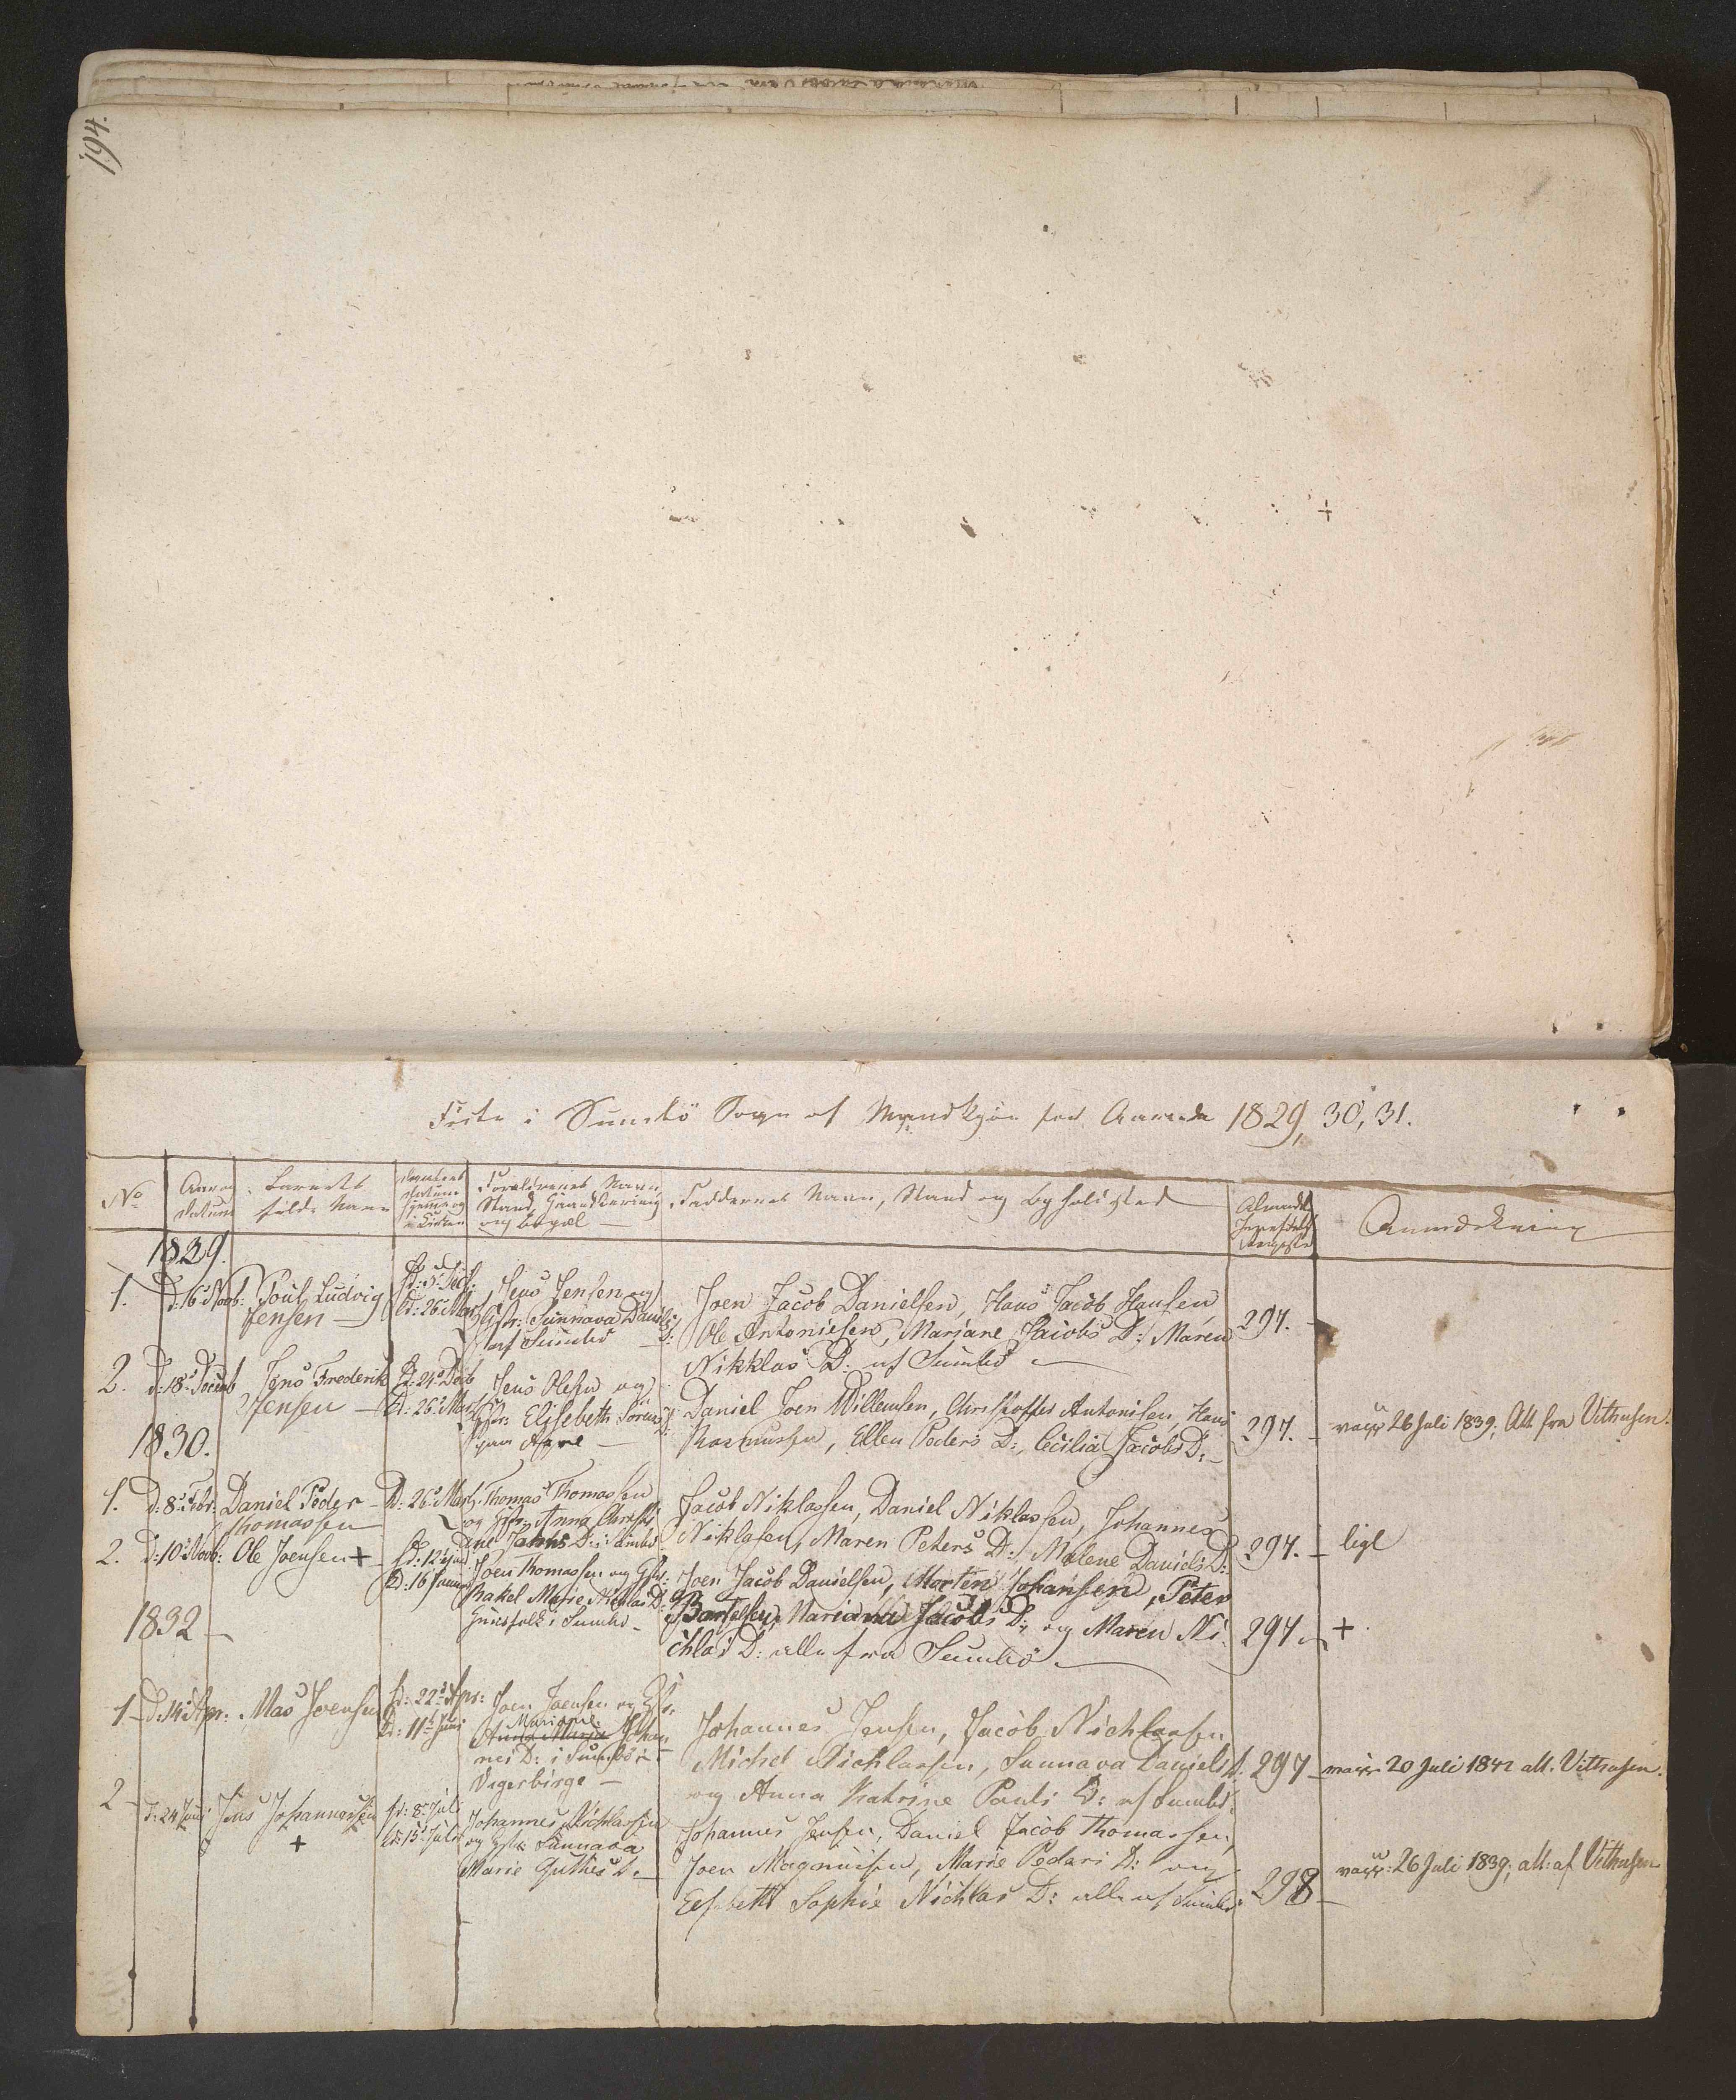 194.
Føde i Sumbø Sogn af Mandkjøn for Aarene 1829, 30, 31.
No
Aar og
Datum
Barnets
fulde Navn
Daabens
Datum
hjemme og
i Kirken
Forældrenes Navn
Stand, Haandtering
og Bopæl
Faddernes Navn, Stand og Opholdsted
Almindel.
Jevnførels.
Register
Anmærkning
1829.
1.
D: 16 Novb:
Poul Ludvig
Jensen
Kd: 26 Marts
Jens Jensen og
Hstr: Sunnava Daniels
D: af Sumbø
Joen Jacob Danielsen, Hans Jacob Hansen,
Ole Antoniesen, Mariane Jacobs D:, Maren
Nikklas D: af Sumbø
297.
2.
D: 18 Decemb
Jens Frederik
Jensen
Hd: 24 Decb
Kd: 26 Marts
Jens Olesen og
Hstr: Elisebeth Sörens
D:
Daniel Joen Willemsen, Christoffer Antonisen, Hans
Rasmussen, Ellen Peders D:, Cecilia Jacobs D:
297.
vacc: 26 Juli 1839, Att fra Vithusen.
1830.
1.
D: 8 Febr:
Daniel Peder
Thomassen
D: 26 Marts
Thomas Thomassen
og Hstr Anna Christi
ane Johns D: i Sumbø
Jacob Niklassen, Daniel Niklassen, Johannes
Niklasen, Maren Peters D:, Malene Daniels D:
297.
ligl
2.
D: 10 Novb:
Ole Joensen +
Hd: 12
Kd: 16 Januar
Joen Thomassen og Hstr:
Rakel Marie Nicklas D:
Huusfolk i Sumbø
Joen Jacob Danielsen, Morten Johansen, Peter
Bartelsen, Mariana Jacobs D:, og Maren Ni-
chlas D: alle fra Sumbø
297
+
1832
1
D: 14 Apr:
Mas Joensen
Hd: 22 Apr:
Kd: 11 Juni
Joen Joensen og Hstr
Mariane
Anna Maria Johan
nes D: i Sumbø i
Vagerbirge
Johannes Jensen, Jacob Nichlassen,
Michel Nichlassen, Sunnava Daniels D:
og Anna Katrine Pouls D: af Sumbø
297
vacc: 20 Juli 1842 att. Vithusen.
2
D: 24 Juni
Jens Johannessen
+
Hd: 8 Juli
Kd: 15 Juli
Johannes Nichlassen
og Hstr Sunnava
Marie Guttes D:
Johannes Jensen, Daniel Jacob Thomassen,
Joen Magnussen, Marie Peders D: og
Elsebeth Sophie Nichlas D: alle af Sumbø
298
vacc: 26 Juli 1839, att: af Vithusen